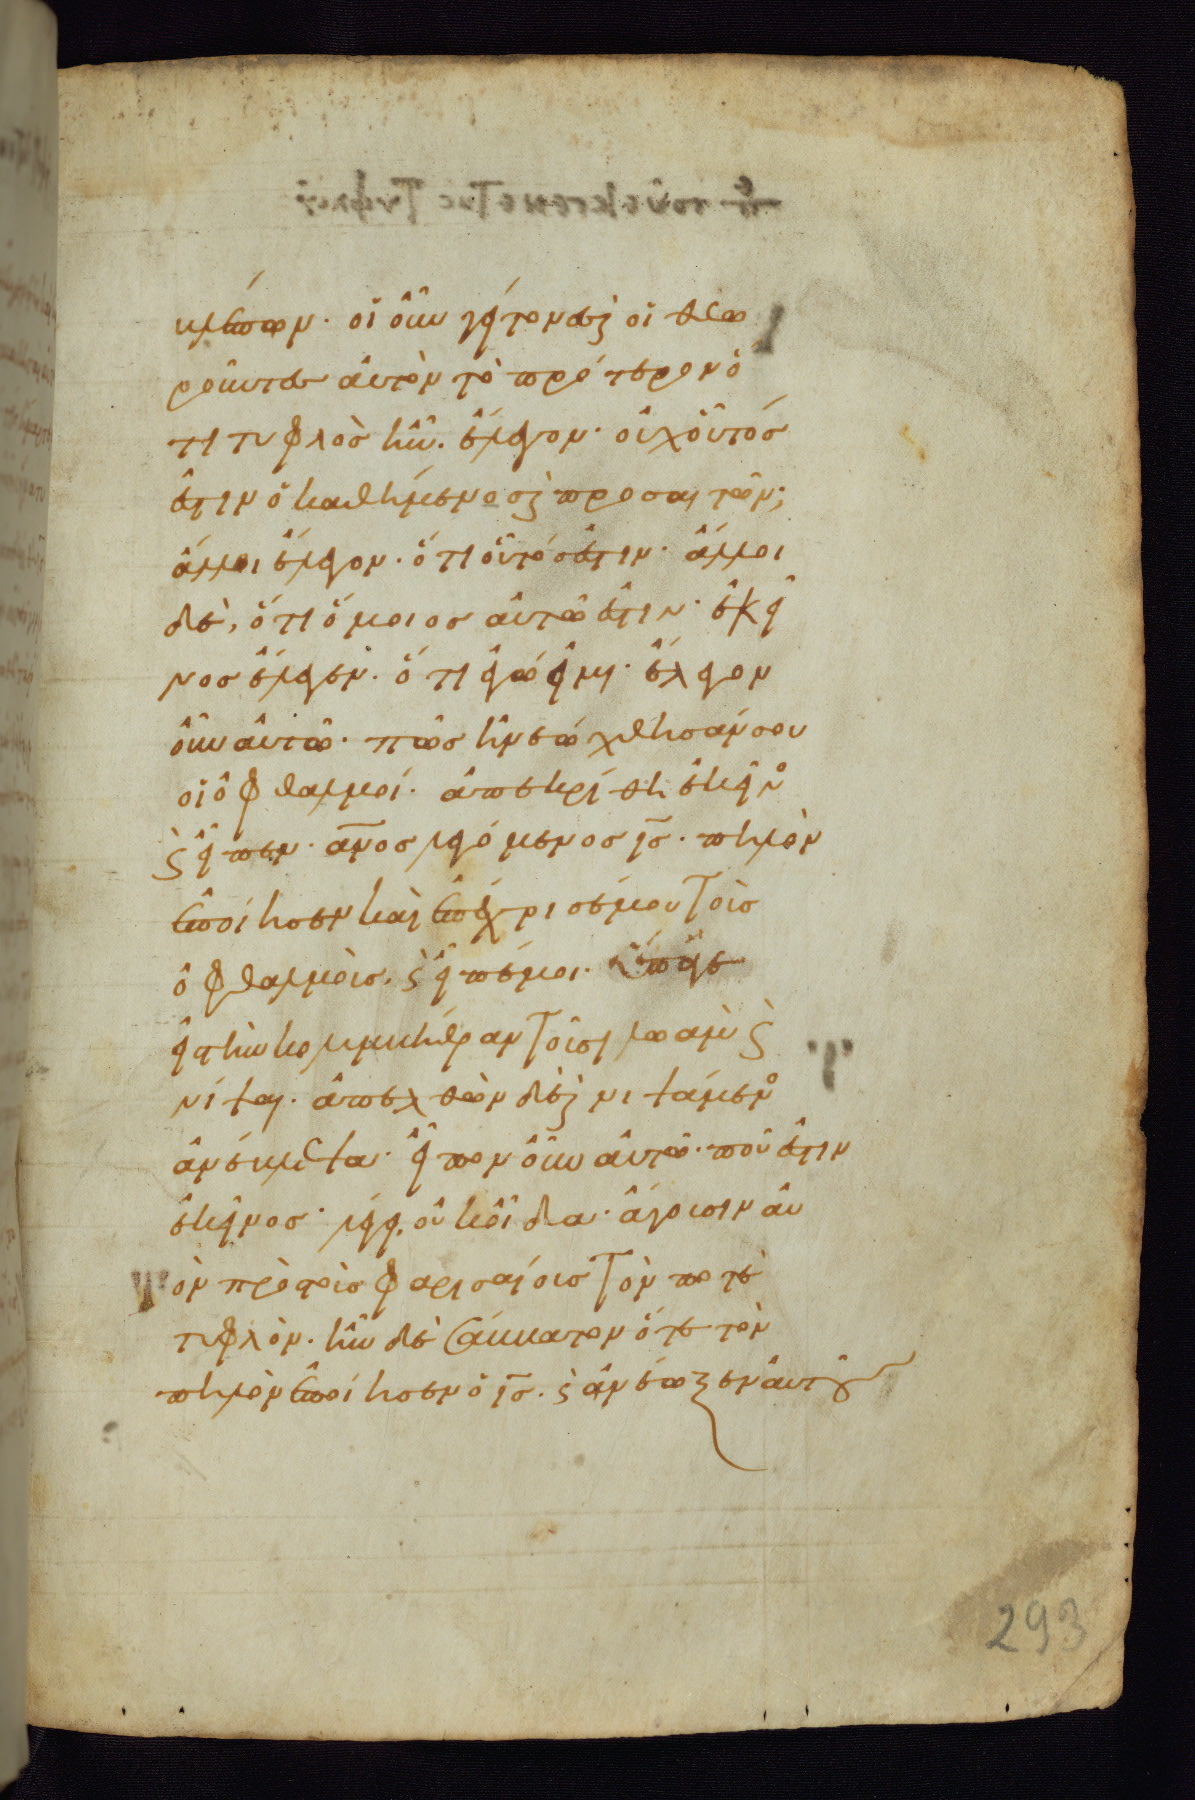 βλέπων· οἱ οὖν γείτονες καὶ οἱ θεω
ροῦντες αὐτὸν τὸ πρότερον ὅ
τι τυφλὸς ἦν. ἔλεγον· οὐχ οὗτός
ἐστιν ὁ καθήμενος καὶ προσαιτῶν;
ἄλλοι ἔλεγον· ὅτι οὗτός ἐστιν· ἄλλοι
δὲ, ὅτι ὅμοιος αὐτῶ ἐστιν· ἐκεῖ
νος ἔλεγεν· ὅτι ἐγώ εἰμι· ἔλεγον
οὖν αὐτῶ· πῶς ἠνεώχθησάν σου
οἱ ὀφθαλμοί· ἀπεκρίθη ἐκεῖνο
καὶ εἶπεν· ἄνος λεγόμενος ις· πηλὸν
ἐποίησεν καὶ ἐπέχρισέ μου τοὺς
ὀφθαλμοὺς. καὶ εἶπέ μοι· ὕπαγε
εἰς τὴν κολυμβήθραν τοῦ σιλωὰμ καὶ
νίψαι· ἀπελθὼν δὲ καὶ νιψάμενο
ἀνέβλεψα· εἶπον οὖν αὐτῶ· ποῦ ἐστιν
ἐκεῖνος· λέγει, οὐκ οἶδα· ἄγουσιν αὐ
ὸν πρὸς τοὺς φαρισαίους τὸν ποτὲ
τυφλόν. ἦν δὲ σάββατον ὅτε τὸν
πηλὸν ἐποίησεν ὁ ις. καὶ ἀνέωξεν αὐτοῦ
293